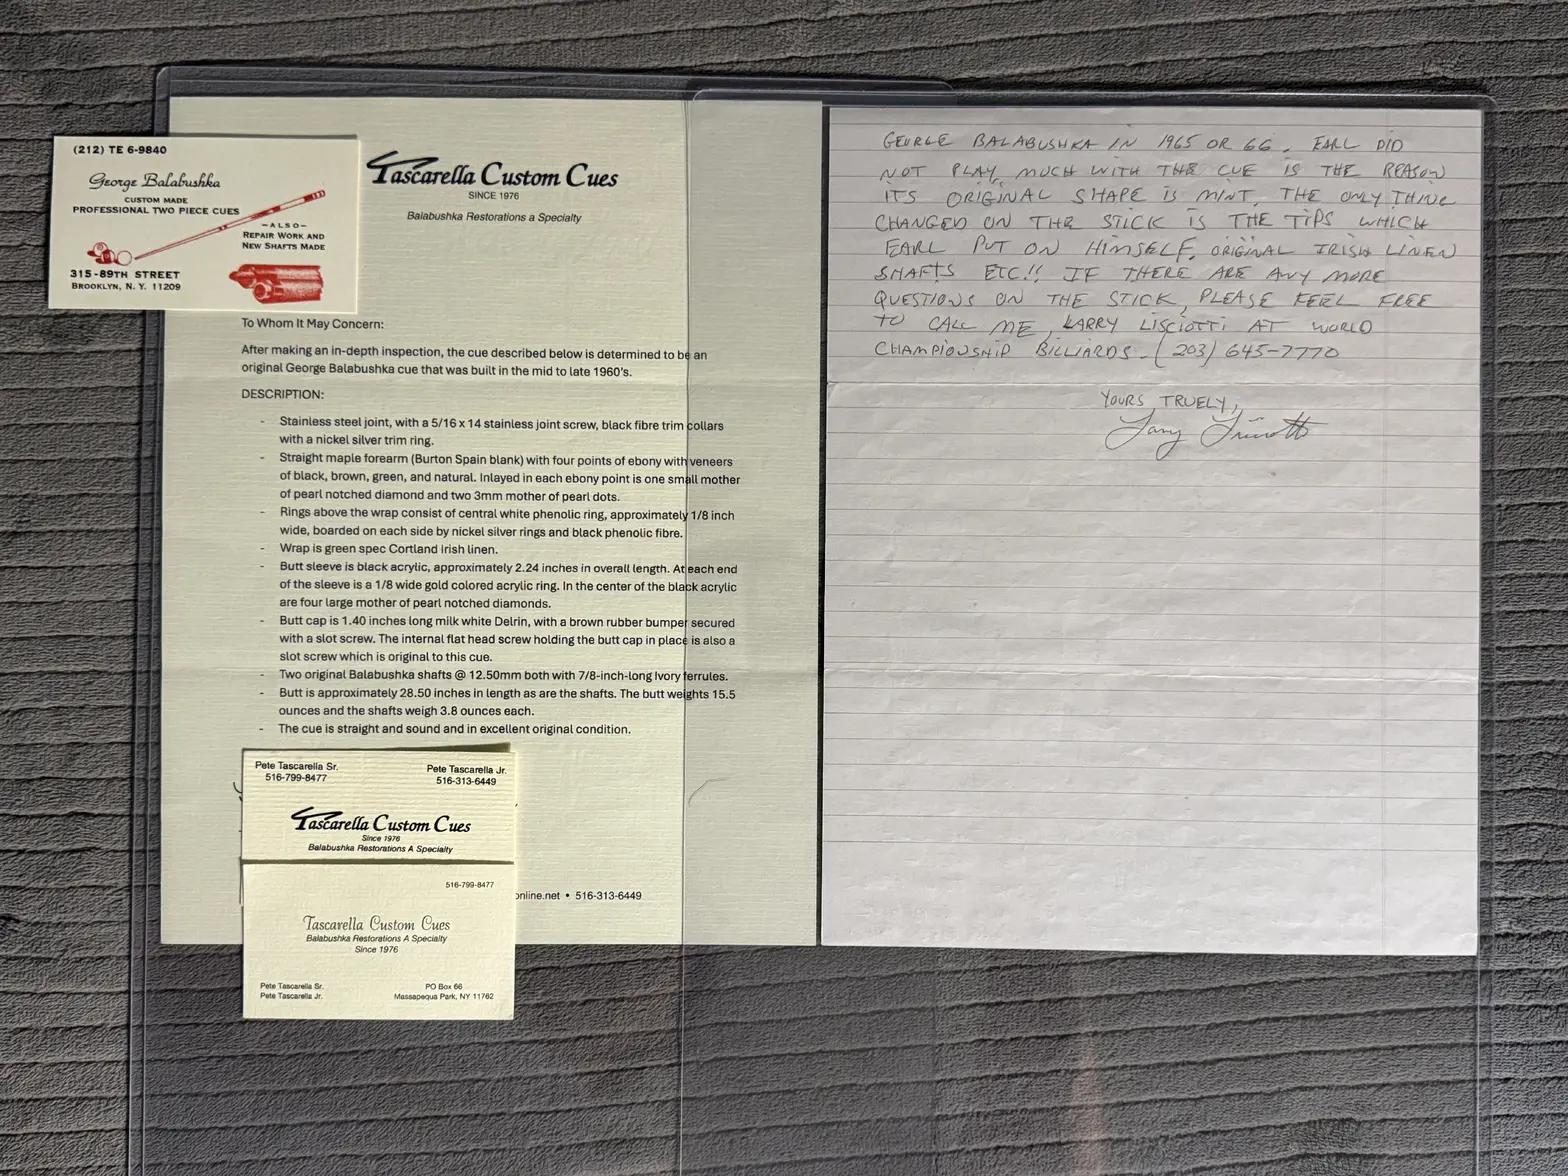 (212) TE 6-9840
George Balabushka
CUSTOM MADE
PROFESSIONAL TWO PIECE CUES
-ALSO-
REPAIR WORK AND
NEW SHAFTS MADE
315-89TH STREET
BROOKLYN, N. Y. 11209
Tascarella Custom Cues
SINCE 1976
Balabushka Restorations a Specialty
To Whom It May Concern:
After making an in-depth inspection, the cue described below is determined to be an
original George Balabushka cue that was built in the mid to late 1960's.
DESCRIPTION:
- Stainless steel joint, with a 5/16 x 14 stainless joint screw, black fibre trim collars
with a nickel silver trim ring.
- Straight maple forearm (Burton Spain blank) with four points of ebony with veneers
of black, brown, green, and natural. Inlayed in each ebony point is one small mother
of pearl notched diamond and two 3mm mother of pearl dots.
- Rings above the wrap consist of central white phenolic ring, approximately 1/8 inch
wide, boarded on each side by nickel silver rings and black phenolic fibre.
- Wrap is green spec Cortland Irish linen.
- Butt sleeve is black acrylic, approximately 2.24 inches in overall length. At each end
of the sleeve is a 1/8 wide gold colored acrylic ring. In the center of the black acrylic
are four large mother of pearl notched diamonds.
- Butt cap is 1.40 inches long milk white Delrin, with a brown rubber bumper secured
with a slot screw. The internal flat head screw holding the butt cap in place is also a
slot screw which is original to this cue.
- Two original Balabushka shafts @ 12.50mm both with 7/8-inch-long Ivory ferrules.
- Butt is approximately 28.50 inches in length as are the shafts. The butt weights 15.5
ounces and the shafts weigh 3.8 ounces each.
- The cue is straight and sound and in excellent original condition.
Pete Tascarella Sr.
516-799-8477
Pete Tascarella Jr.
516-313-6449
Tascarella Custom Cues
Since 1976
Balabushka Restorations A Specialty
online.net • 516-313-6449
516-799-8477
Tascarella Custom Cues
Balabushka Restorations A Specialty
Since 1976
Pete Tascarella Sr.
Pete Tascarella Jr.
PO Box 66
Massapequa Park, NY 11762
GEORGE BALABUSHKA IN 1965 OR 66. EARL DID
NOT PLAY MUCH WITH THE CUE IS THE REASON
ITS ORIGINAL SHAPE IS MINT. THE ONLY THING
CHANGED ON THE STICK IS THE TIPS WHICH
EARL PUT ON HIMSELF. ORIGINAL IRISH LINEN
SHAFTS ETC!! IF THERE ARE ANY MORE
QUESTIONS ON THE STICK, PLEASE FEEL FREE
TO CALL ME, LARRY LISCIOTTI AT WORLD
CHAMPIONSHIP BILLIARDS. (203) 645-7770
YOURS TRUELY,
Larry Lisciotti